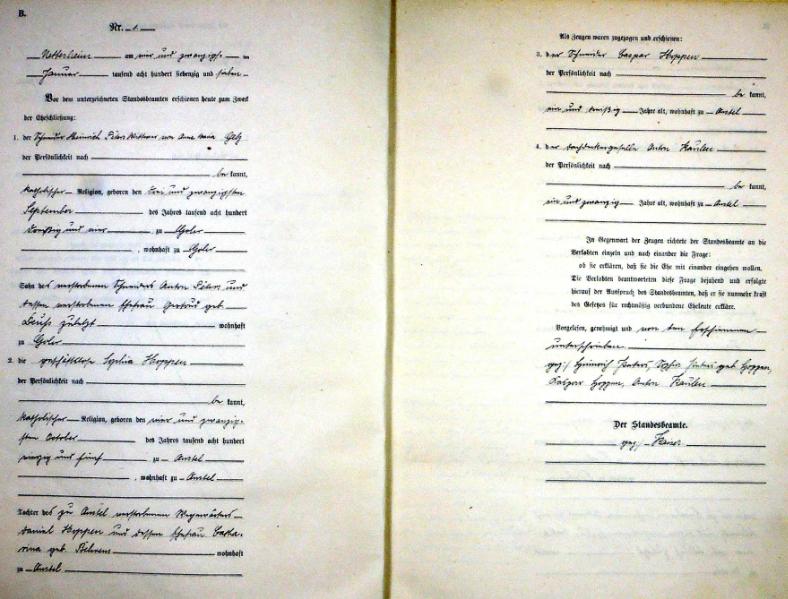 B.
Nr. 1
Netterheim am vier und zwanzigsten
Januar tausend acht hundert siebenzig und sieben
Vor dem unterzeichneten Standesbeamten erschienen heute zum Zweck
der Eheschließung:
1. der Schneider Heinrich Peters Wittwer von Anna Maria
der Persönlichkeit nach
be kannt,
katholischer Religion, geboren den und zwanzigsten
September des Jahres tausend acht hundert
dreißig und vier zu Goler
, wohnhaft zu Goler
Sohn des verstorbenen Schneiders Anton Peters und
dessen verstorbenen Ehefrau Gertrud geb.
zuletzt wohnhaft
zu Goler
2. die geschäftslose Sophia Hoppen
der Persönlichkeit nach
be kannt,
katholischer Religion, geboren den vier und zwanzig-
sten October des Jahres tausend acht hundert
vierzig und fünf zu
, wohnhaft zu
Tochter des zu verstorbenen
Daniel Hoppen und dessen Ehefrau Catha-
rina geb. wohnhaft
zu
Als Zeugen waren zugezogen und erschienen:
3. der Schneider Caspar Hoppen
der Persönlichkeit nach
be kannt,
ein und dreißig Jahre alt, wohnhaft zu
4. der Dachdeckergeselle Anton Kaulen
der Persönlichkeit nach
be kannt,
ein und zwanzig Jahre alt, wohnhaft zu
In Gegenwart der Zeugen richtete der Standesbeamte an die
Verlobten einzeln und nach einander die Frage:
ob sie erklären, daß sie die Ehe mit einander eingehen wollen.
Die Verlobten beantworteten diese Frage bejahend und erfolgte
hierauf der Ausspruch des Standesbeamten, daß er sie nunmehr kraft
des Gesetzes für rechtmäßig verbundene Eheleute erkläre.
Vorgelesen, genehmigt und von den Erschienenen
unterschrieben
gez. Heinrich Peters, Sophia Peters geb. Hoppen,
Caspar Hoppen, Anton Kaulen
Der Standesbeamte.
gez.